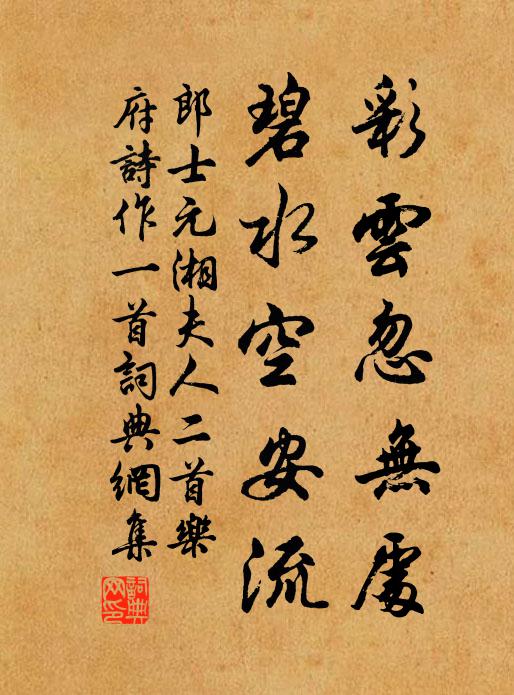 彩雲忽無處
碧水空安流
郎士元湘夫人二首樂
府詩作一首詞典網集
詞典網印